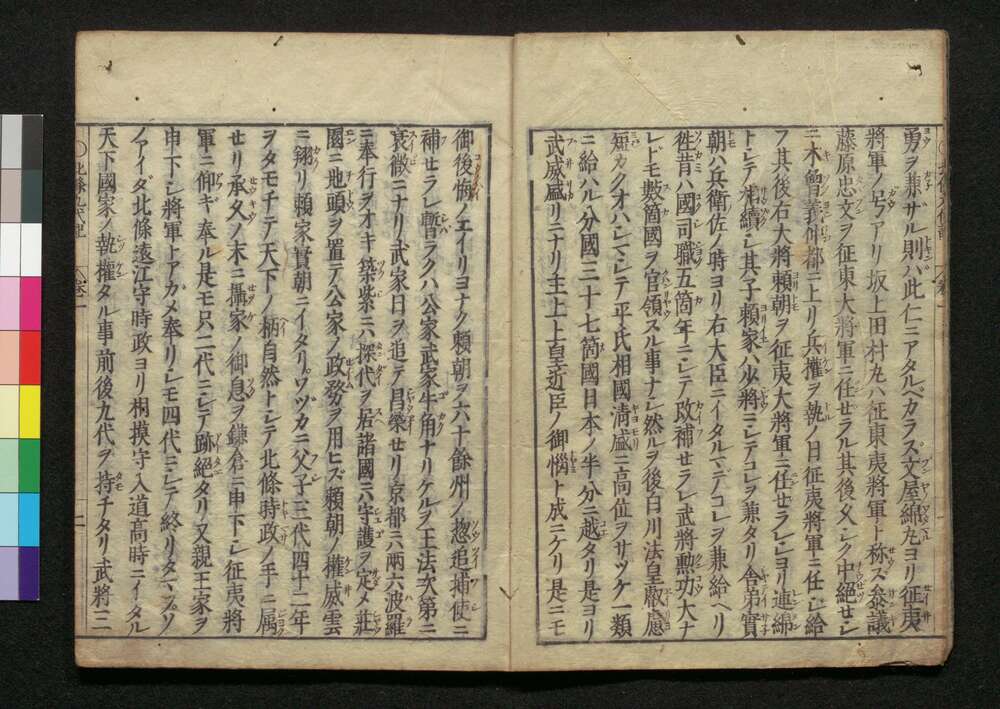 勇ヲ兼サル則ハ此仁ニアタルベカラス文屋綿丸ヨリ征夷
将軍ノ号アリ坂上田村丸ハ征東夷將軍ト称ス叅議
藤原忠文ヲ征東大將軍ニ任セラル其後久シク中絶セシ
ニ木曽義仲都ニ上リ兵權ヲ執ノ日征夷將軍ニ任シ給
フ其後右大將頼朝ヲ征夷大將軍ニ任セラレシヨリ連綿
トシテ相續シ其子頼家ハ少將ニシテコレヲ兼タリ舎弟實
朝ハ兵衛佐ノ時ヨリ右大臣ニイタルマデコレヲ兼給ヘリ
徃昔ハ國司職五箇年ニシテ改補セラレ武將勲功大ナ
レドモ数箇國ヲ官領スル事ナシ然ルヲ後白川法皇叡慮
短カクオハシマシテ平氏相國清盛ニ高位ヲサヅケ一類
ニ給ハル分國三十七箇國日本ノ半分ニ越タリ是ヨリ
武威盛リニナリ主上上皇近臣ノ御惱ト成ニケリ是ニモ
御後悔ノエイリヨナク頼朝ヲ六十餘州ノ惣追捕使ニ
補セラレ暫ラクハ公家武家牛角ナリケルヲ王法次第ニ
衰微ニナリ武家日ヲ追テ昌榮セリ京都ニハ兩六波羅
ニ奉行ヲオキ築紫ニハ探代ヲ居諸國ニ六守護ヲ定メ莊
園ニ地頭ヲ置テ公家ノ政務ヲ用ヒズ頼朝ノ權威雲
ニ翔リ頼家實朝ニイタリワヅカニ父子三代四十二年
ヲタモチテ天下ノ柄自然トシテ北條時政ノ手ニ属
セリ承久ノ末ニ攝家ノ御息ヲ鎌倉ニ申下シ征夷將
軍ニ仰ギ奉ル是モ只二代ニシテ跡絶タリ又親王家ヲ
申下シ將軍トアガメ奉リシモ四代ニシテ終リタマフソ
ノアイダ北條遠江守時政ヨリ相摸守入道高時ニイタル
天下國家ノ執權タル事前後九代ヲ持チタリ武將ニ